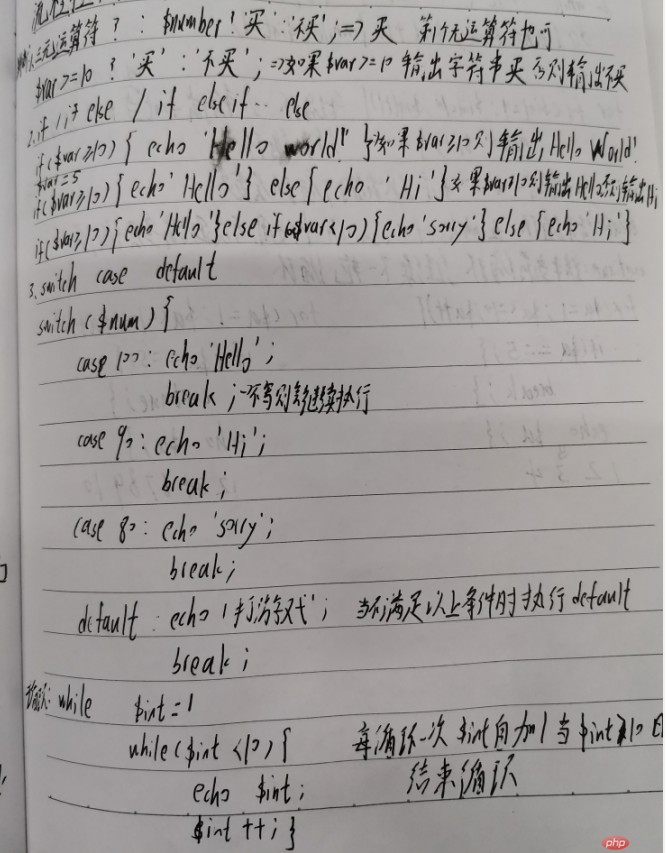 三元运算符 ? : $number ? '买' : '不买' ; => 买
$var >= 10 ? '买' : '不买' ; => 如果 $var >= 10 输出字符串买 否则输出不买
2. if / if else / if else if ... else
if ($var ≥ 10) { echo 'Hello world!' } 如果 $var ≥ 10 则输出 Hello World!
$var = 5
if ($var ≥ 10) { echo 'Hello' } else { echo 'Hi' } 如果 $var ≥ 10 则输出 Hello 否则输出 Hi
if ($var ≥ 10) { echo 'Hello' } else if ($var < 10) { echo 'sorry' } else { echo 'Hi' }
3. switch case default
switch ($num) {
case 100: echo 'Hello' ;
break ; 不写则会继续执行
case 90: echo 'Hi' ;
break ;
case 80: echo 'sorry' ;
break ;
default : echo ; 当不满足以上条件时执行 default
break ;
while $int = 1
while ($int < 10) { 每循环一次 $int 自加1 当 $int ≥ 10 时
echo $int ; 结束循环
$int ++ ; }
php